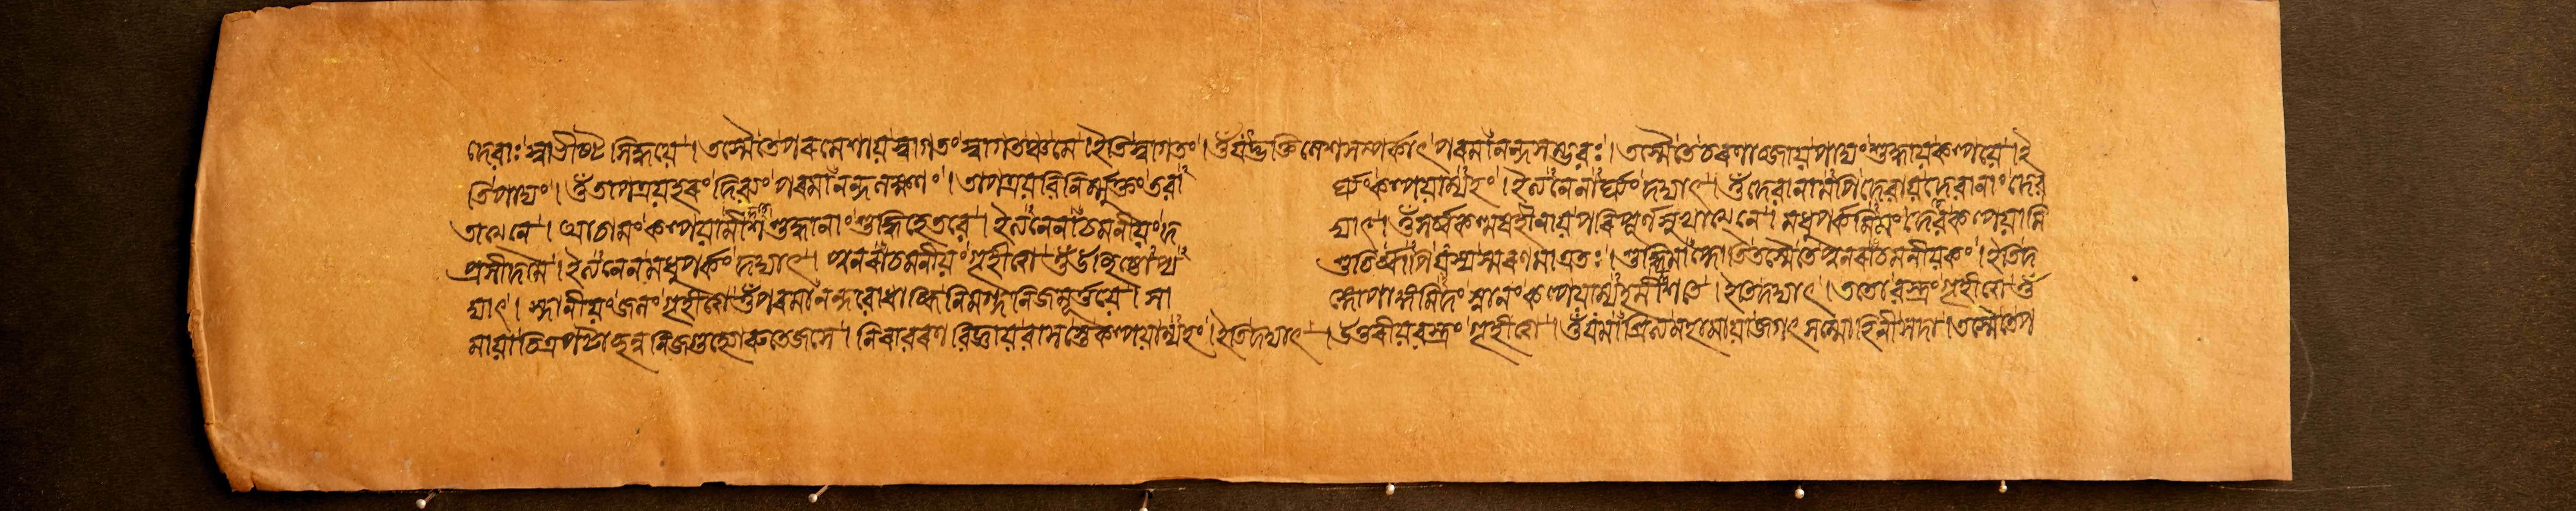 দেৱাঃ স্বাভীষ্ট সিদ্ধয়ে । তস্মৈতেপৰমেশায়স্বাগতংস্বাগতঞ্চমে । ইতিস্বাগতং । ওঁযদ্ভক্তিলেশসম্পর্কাৎপৰমানন্দসম্ভৱঃ । তস্মৈতেচৰণাব্জায়পাদ্যংশুদ্ধায়কল্পয়ে । ই
তিপাদ্যং । ওঁতাপত্রয়হৰংদিৱ্যংপৰমানন্দলক্ষণং । তাপত্রয়ৱিনির্ম্মুক্তংতৱা র্ঘ্যংকল্পয়াম্যহং । ইত্যনেনার্ঘ্যংদদ্যাৎ । ওঁদেৱানামপিদেৱায়দেৱানাংদেৱ
তাত্মনে । আচামংকল্পয়ামীশশুদ্ধানাংশুদ্ধিহেতৱে । ইত্যনেনাচমনীয়ংদ দ্যাৎ । ওঁসর্ব্বকল্মষহীনায়পৰিপূর্ণসুখাত্মনে । মধুপর্কমিমংদেৱকল্পয়ামি
প্রসীদমে । ইত্যনেনমধুপর্কংদদ্যাৎ । পুনৰাচমনীয়ংগৃহীত্বা ওঁউচ্ছিষ্টোপ্য শুচির্ব্বাপিযস্যস্মৰণমাত্রতঃ । শুদ্ধিমাপ্নোতিতস্মৈতেপুনৰাচমনীয়কং । ইতিদ
দ্যাৎ । স্নানীয়ংজলংগৃহীত্বাওঁপৰমানন্দৱোধাব্ধিনিমগ্ননিজমূর্ত্তয়ে । সা ঙ্গোপাঙ্গমিদংস্নানংকল্পয়াম্যহমীশতে । ইতিদদ্যাৎ । ততোৱস্ত্রংগৃহীত্বা ওঁ
মায়াচিত্রপটাচ্ছন্ননিজগুহ্যোৰুতেজসে । নিৰাৱৰণৱিজ্ঞায়ৱাসস্তেকল্পয়াম্যহং । ইতিদদ্যাৎ । উত্তৰীয়ৱস্ত্রংগৃহীত্বা । ওঁযমাশ্রিত্যমহামায়াজগৎসম্মোহিনীসদা । তস্মৈতেপ